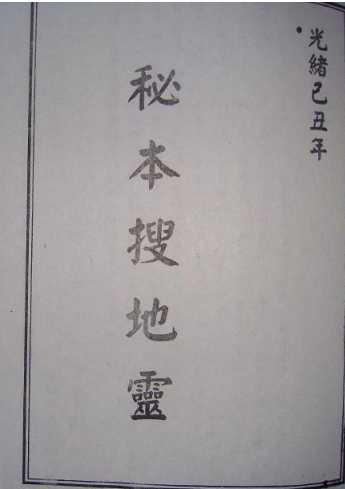 光緒己丑年
秘本搜地靈